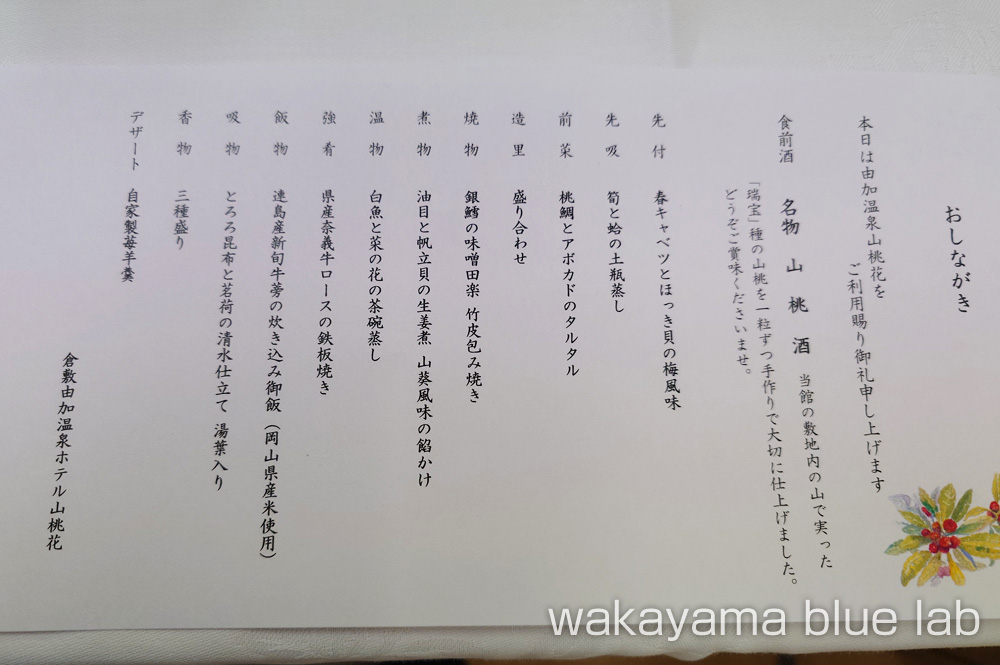 おしながき
本日は由加温泉山桃花を
ご利用賜り御礼申し上げます
食前酒 名物 山桃酒 当館の敷地内の山で実った
「瑞宝」種の山桃を一粒ずつ手作りで大切に仕上げました。
どうぞご賞味くださいませ。
先付 春キャベツとほっき貝の梅風味
先吸 筍と蛤の土瓶蒸し
前菜 桃鯛とアボカドのタルタル
造里 盛り合わせ
焼物 銀鱈の味噌田楽 竹皮包み焼き
煮物 油目と帆立貝の生姜煮 山葵風味の餡かけ
温物 白魚と菜の花の茶碗蒸し
強肴 県産奈義牛ロースの鉄板焼き
飯物 連島産新旬牛蒡の炊き込み御飯（岡山県産米使用）
吸物 とろろ昆布と茗荷の清水仕立て 湯葉入り
香物 三種盛り
デザート 自家製苺羊羹
倉敷由加温泉ホテル山桃花
wakayama blue lab